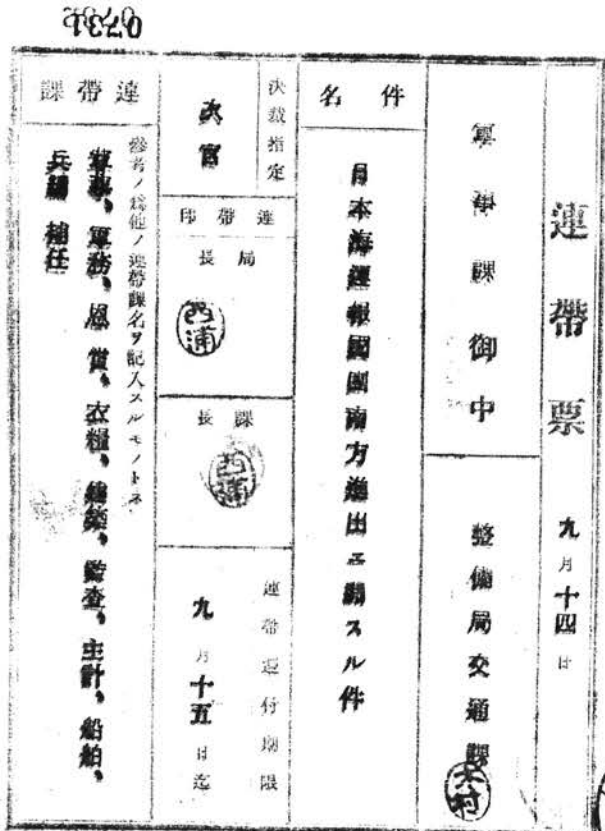 0731
連帶票
九月十四日
軍事課御中
整備局交通課
大村
件名
日本海運報國團南方進出ニ關スル件
決裁指定
次官
連帶印
局長
西浦
課長
西浦
連帶返付期限
九月十五日迄
連帶課
參考ノ爲他ノ連帶課名ヲ記入スルモノトス
軍事、軍務、恩賞、衣糧、建築、監査、主計、船舶、
兵備 補任